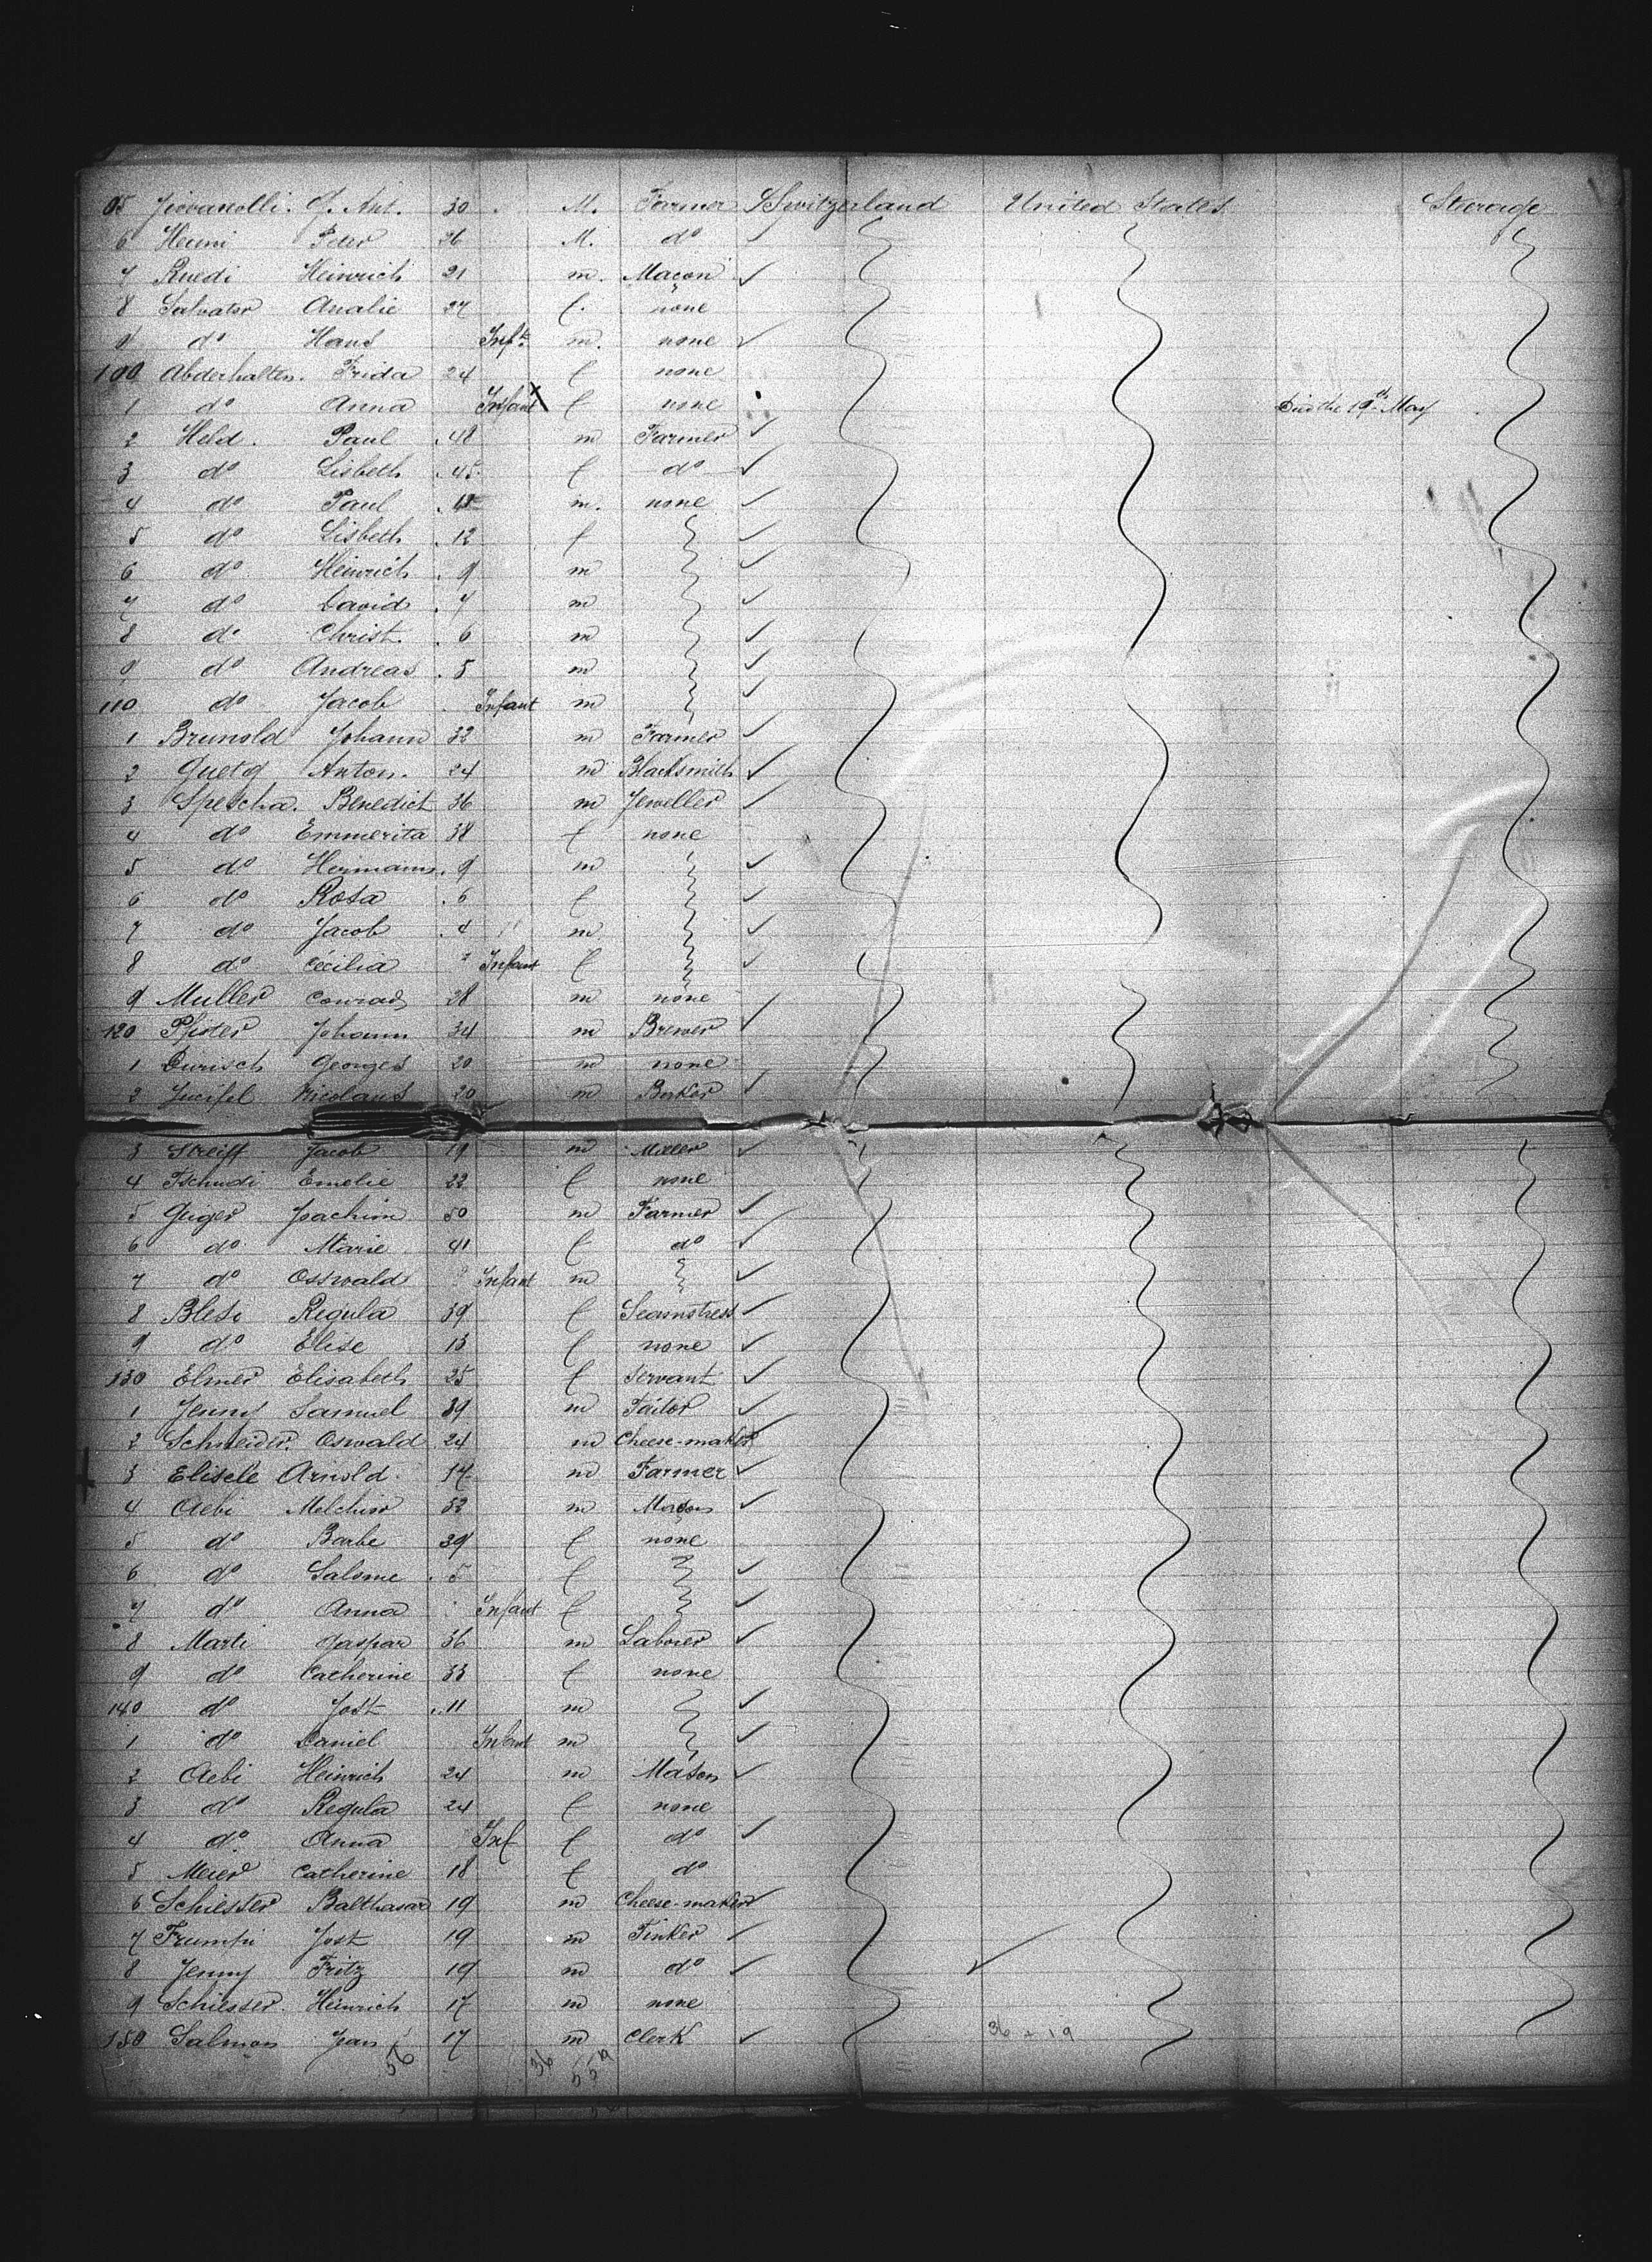 95 Giovanolli. G. Ant. 30 M. Farmer Switzerland United States Steerage
6 Henni Peter 26 M. do
7 Ruedi Heinrich 21 m. Maçon
8 Salvator Analie 27 f. none
9 do Hans Inft. m. none
100 Abderhalten. Frida 24 f none
1 do Anna Infant f none Died the 19th May
2 Held. Paul 48 m Farmer
3 do Lisbeth 45 f do
4 do Paul m. none
5 do Lisbeth 12 f
6 do Heinrich 9 m
7 do David 7 m
8 do Christ. 6 m
9 do Andreas 5 m
110 do Jacob Infant m
1 Brunold Johann 32 m Farmer
2 Guetg Anton. 24 m Blacksmith
3 Spescha. Benedict 36 m Jeweller
4 do Emmerita 38 f none
5 do Hermann. 9 m
6 do Rosa 6 f
7 do Jacob 4 m
8 do Cecilia Infant f
9 Muller Conrad 28 m none
120 Pfister Johann 34 m Brewer
1 Durisch Georges 20 m none
2 Nicolaus 20 m Baker
3 Streiff Jacob 19 m Miller
4 Tschudi Emelie 22 f none
5 Guger Joachim 50 m Farmer
6 do Marie 41 f do
7 do Osswald Infant m
8 Blesi Regula 39 f Seamstress
9 do Elise 13 f none
130 Elmer Elisabeth 25 f Servant
1 Jenny Samuel 39 m Tailor
2 Schneider. Oswald 24 m Cheese-maker
3 Elisele Arnold. 17 m Farmer
4 Aebi Melchior 32 m Maçon
5 do Barbe 39 f none
6 do Salome 5 f
7 do Anna Infant f
8 Marti Gaspar 36 m Laborer
9 do Catherine 33 f none
140 do Jost 11 m
1 do Daniel Infant m
2 Aebi Heinrich 24 m Mason
3 do Regula 24 f none
4 do Anna Inf f do
5 Meier Catherine 18 f do
6 Schiesser Balthasar 19 m Cheese-maker
7 Frumpi Jost 19 m Tinker
8 Jenny Fritz 19 m do
9 Schiesser. Heinrich 17 m none
150 Salmon Jean 17 m Clerk 36 + 19
56 36 55 19